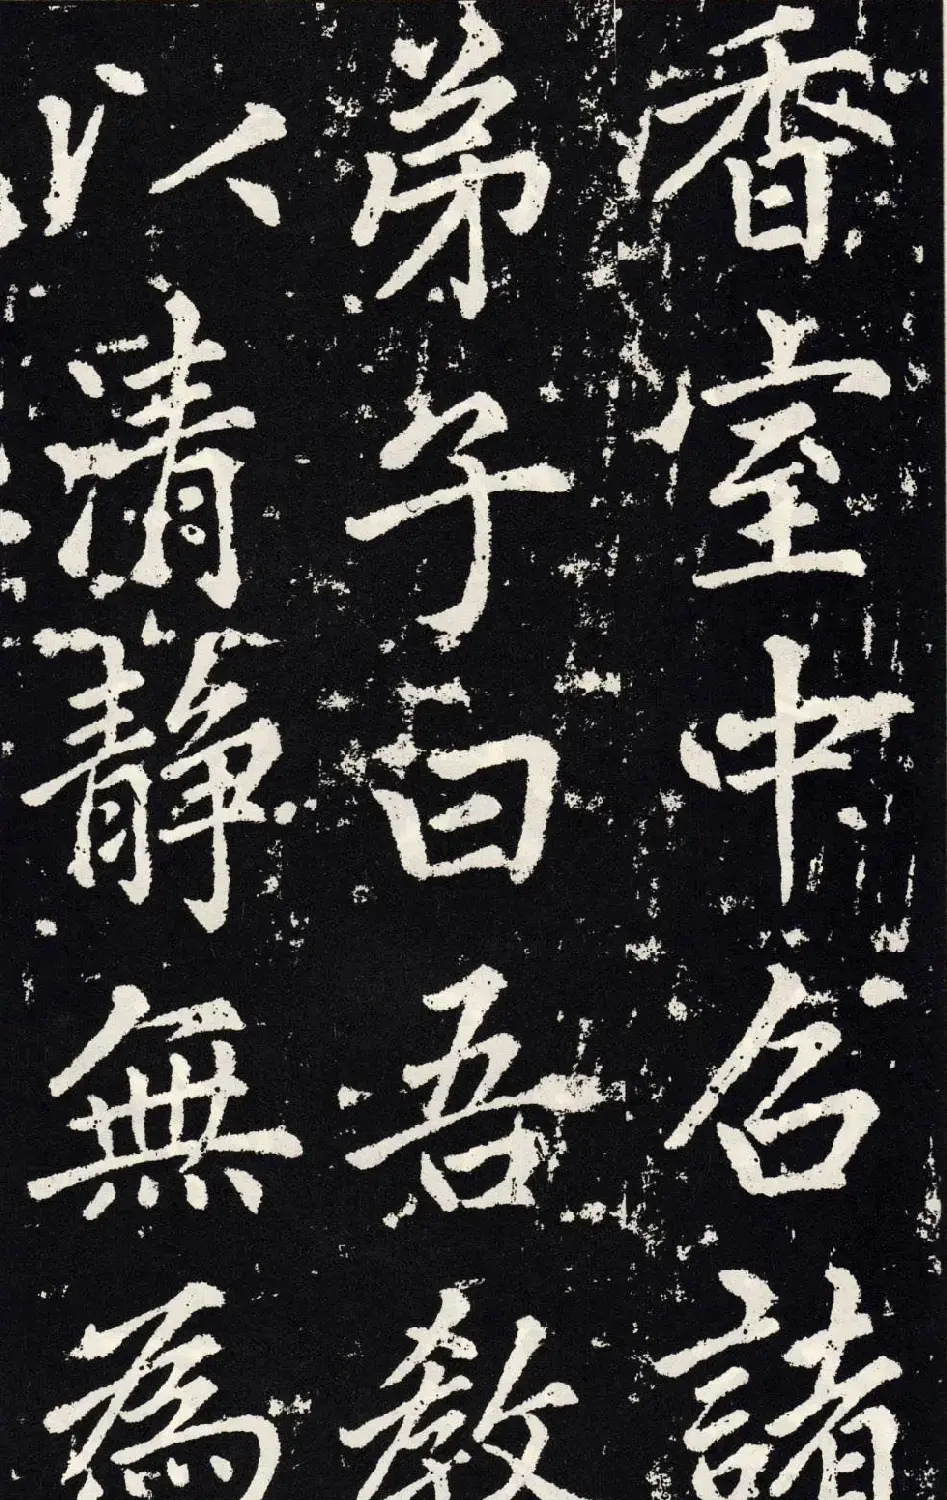 香室中召諸
弟子曰吾教
以清静無為